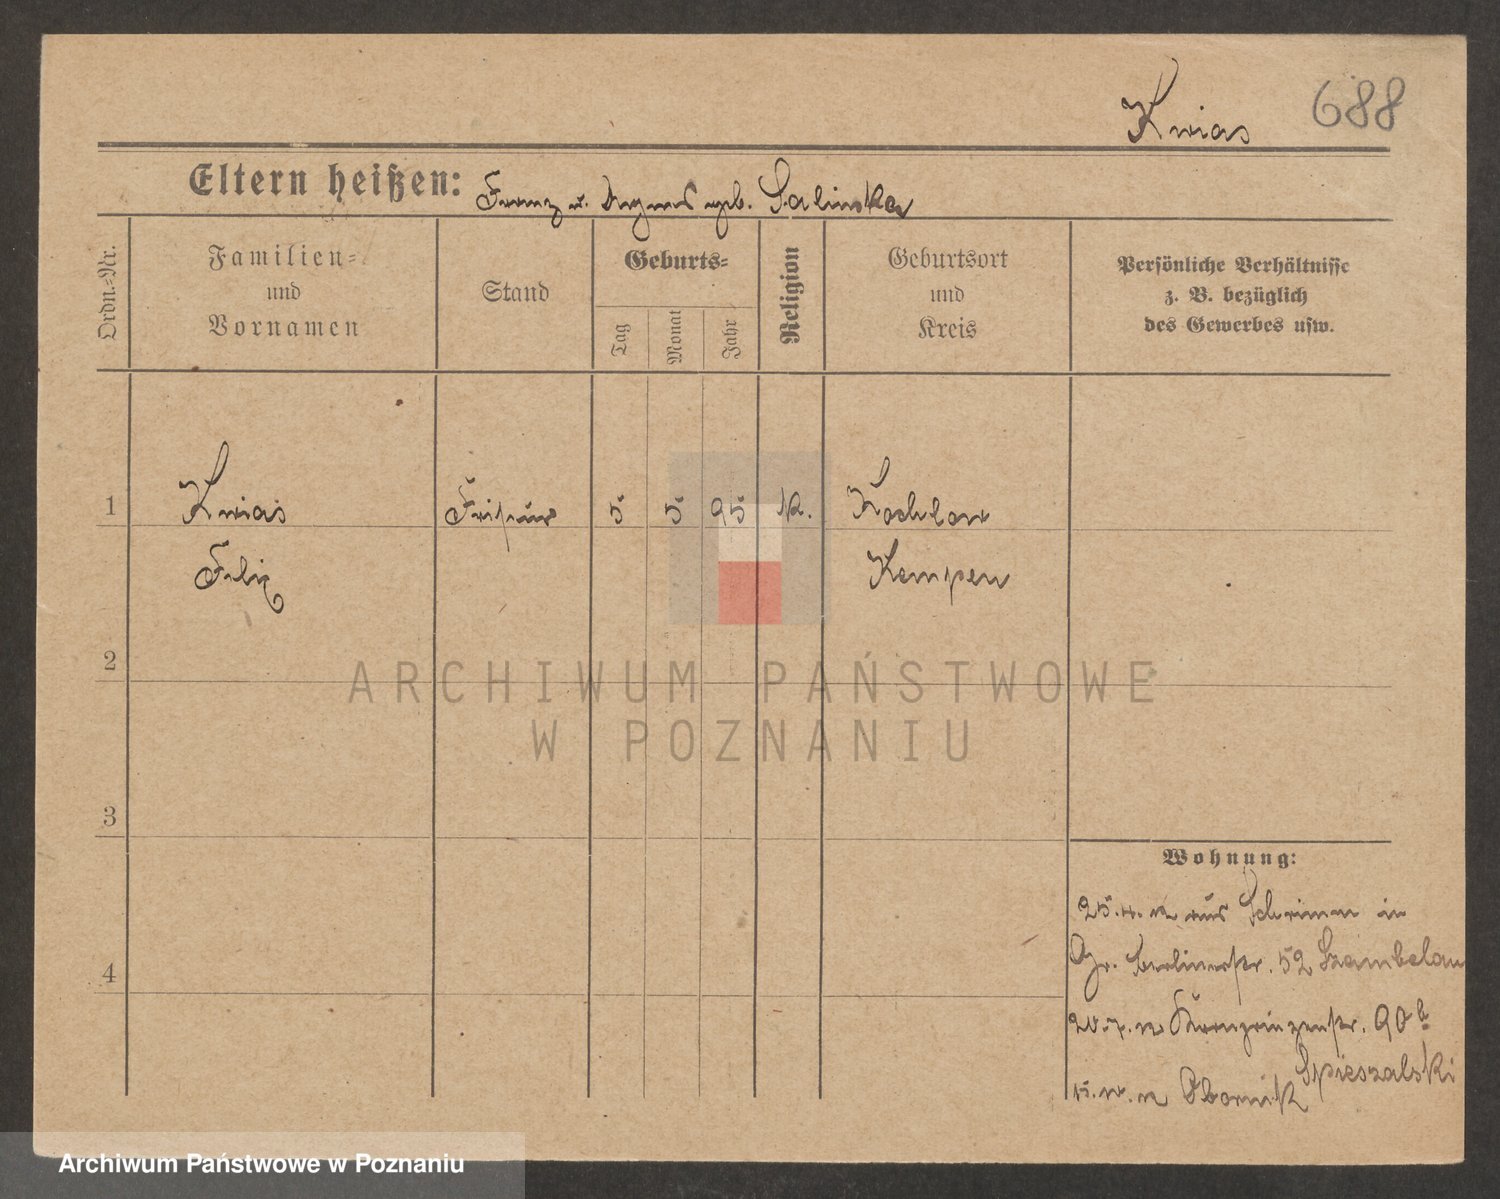 Kwias 688
Eltern heißen: Franz u. Agnes geb. Salinska
Ordn.-Nr.
Familien-
und
Vornamen
Stand
Geburts-
Tag
Monat
Jahr
Religion
Geburtsort
und
Kreis
Persönliche Verhältnisse
z. B. bezüglich
des Gewerbes usw.
1 Kwias Friseur 5 5 95 k. Kochlow
Felix Kempen
2
3
4
Wohnung:
25. 4. aus Schrimm in
Gr. Berlinerstr. 52 Szambelan
Kronprinzenstr. 90
Spieszalski
Obornik
ARCHIWUM PAŃSTWOWE
W POZNANIU
Archiwum Państwowe w Poznaniu